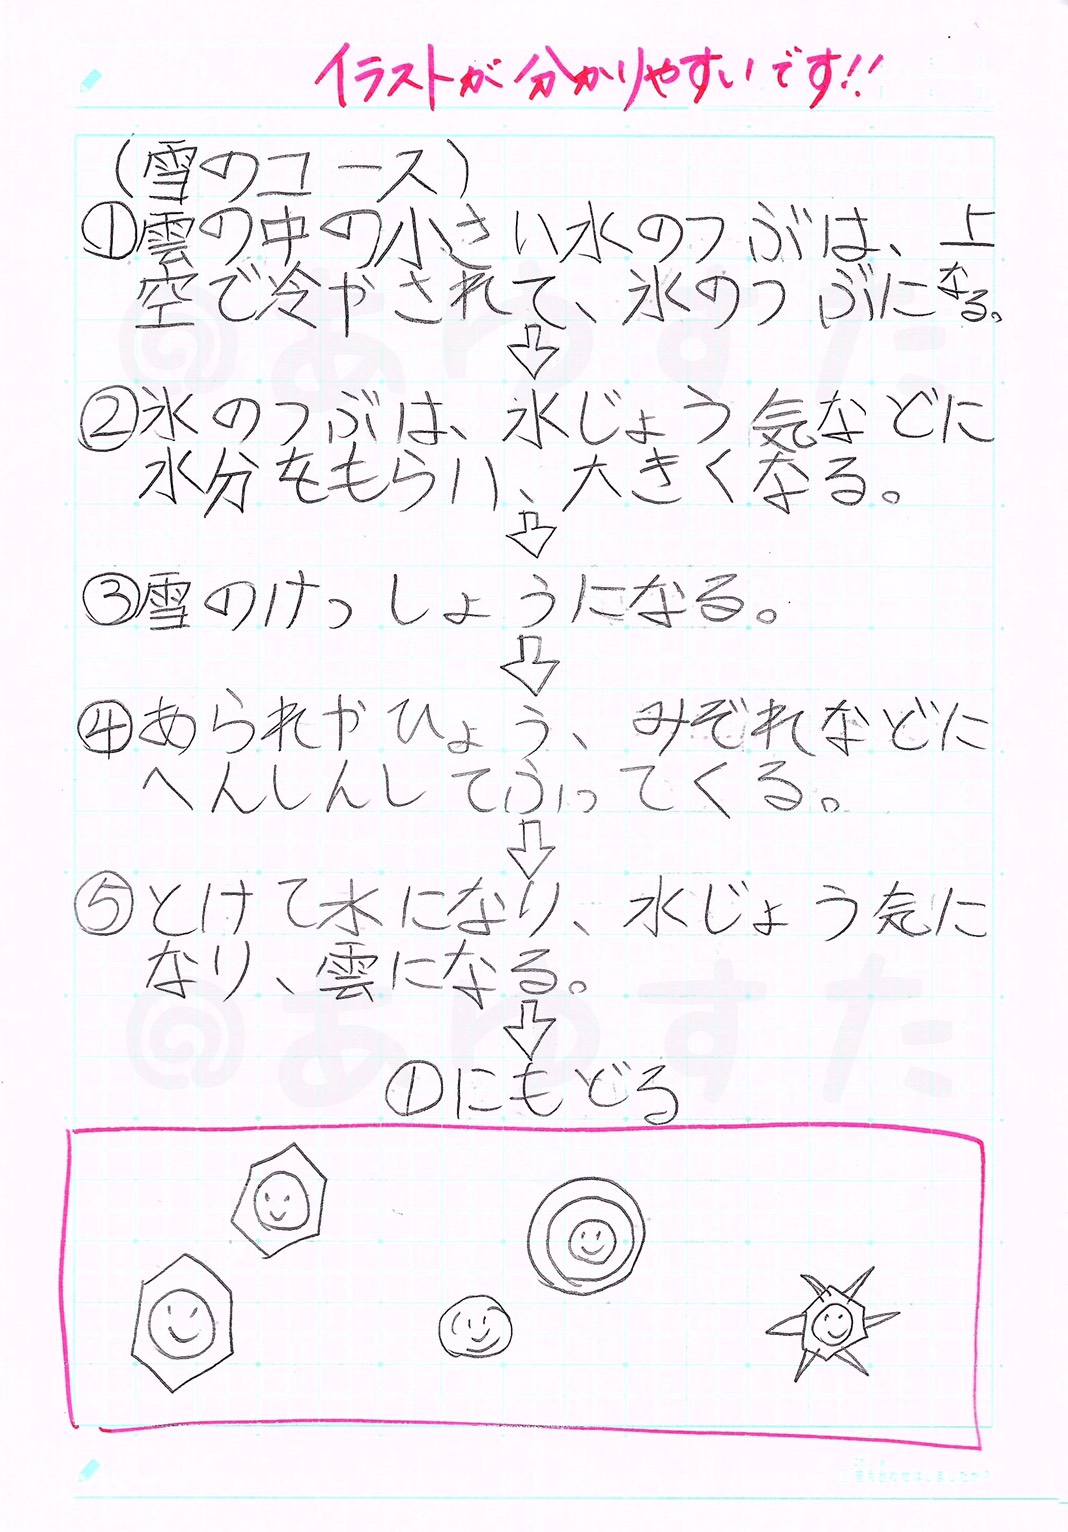 イラストが分かりやすいです!!
(雪のコース)
①雲の中の小さい水のつぶは、上
空で冷やされて、氷のつぶになる。
@あゆすた
②氷のつぶは、水じょう気などに
水分をもらい、大きくなる。
③雪のけっしょうになる。
④あられやひょう、みぞれなどに
へんしんしてふってくる。
⑤とけて水になり、水じょう気に
なり、雲になる。
@あゆすた
①にもどる